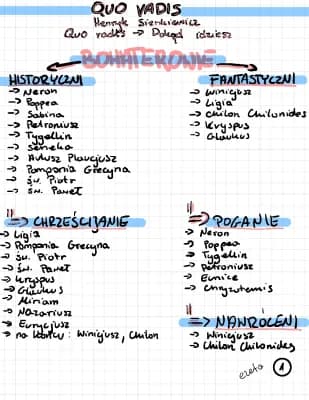 QUO VADIS
Henryk Sienkiewicz
Quo vadis → Dokąd idziesz
BOHATEROWIE
HISTORYCZNI
→ Neron
→ Poppea
→ Sabina
→ Petroniusz
→ Tygellin
→ Seneka
→ Aulusz Plaucjusz
→ Pomponia Grecyna
→ św. Piotr
→ św. Paweł
FANTASTYCZNI
→ Winicjusz
→ Ligia
→ Chilon Chilonides
→ Kryspus
→ Glaukus
=> CHRZEŚCIJANIE
→ Ligia
→ Pomponia Grecyna
→ św. Piotr
→ św. Paweł
→ Kryspus
→ Glaukus
→ Miriam
→ Nazariusz
→ Eurycjusz
→ na końcu: Winicjusz, Chilon
=> POGANIE
→ Neron
→ Poppea
→ Tygellin
→ Petroniusz
→ Eunice
→ Chryzotemis
=> NAWRÓCENI
→ Winicjusz
→ Chilon Chilonides
1